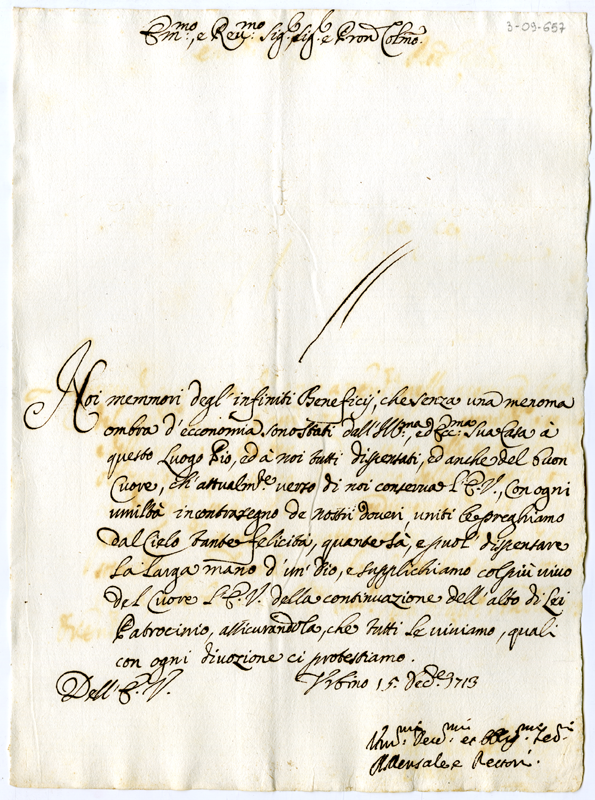 3-09-657
Em.mo, e Reu.mo Sig.r Sig.r e Pron Colmo.
Noi memmori degl'infiniti Beneficij, che senza una menoma
ombra d'ecconomia sono stati dall'Ill.ma, ed Ecc.ma Sua Casa à
questo Luogo Pio, ed à noi tutti dispensati, ed anche del buon
Cuore, ch'attualm.te verso di noi conserva L'E.V., Con ogni
umiltà in contrasegno de nostri doveri, uniti le preghiamo
dal Cielo tante felicità, quante sà, e puol' dispensare
la larga mano d'un Dio, e supplichiamo col più vivo
del Cuore L'E.V. della continuazione dell'alto di Lei
Patrocinio, assicurandola, che tutti le viviamo, quali
con ogni divozione ci protestiamo.
Dell'E.V. Urbino 15. Dec.e 1713
Um.mi Dev.mi et Obblig.mi
e Rettori.